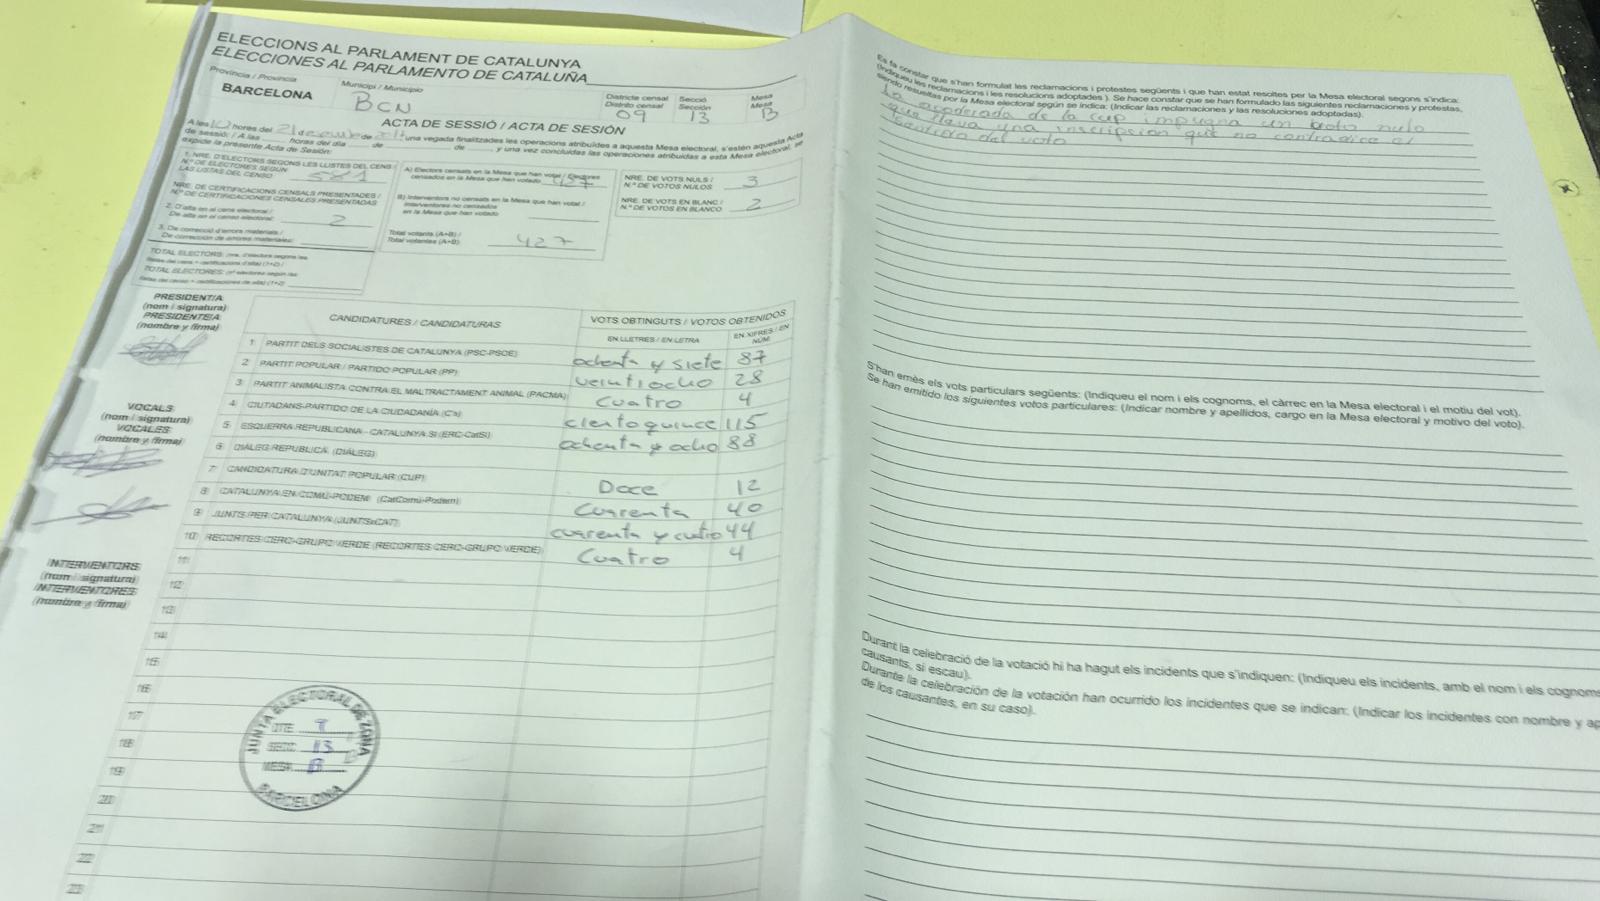 ELECCIONS AL PARLAMENT DE CATALUNYA
ELECCIONES AL PARLAMENTO DE CATALUÑA
Província / Provincia
BARCELONA
Municipi / Municipio
BCN
Districte censal
Distrito censal
09
Secció
Sección
13
Mesa
Mesa
B
ACTA DE SESSIÓ / ACTA DE SESIÓN
A les hores del 21 d de una vegada finalitzades les operacions atribuïdes a aquesta Mesa electoral, s'estén aquesta Acta
de sessió: / A las horas del día de de y una vez concluidas las operaciones atribuidas a esta Mesa electoral, se
expide la presente Acta de Sesión:
1. NRE. D'ELECTORS SEGONS LES LLISTES DEL CENS
N.º DE ELECTORES SEGÚN
LAS LISTAS DEL CENSO 581
NRE. DE CERTIFICACIONS CENSALS PRESENTADES /
N.º DE CERTIFICACIONES CENSALES PRESENTADAS
2. D'alta en el cens electoral /
De alta en el censo electoral: 2
3. De correcció d'errors materials /
De corrección de errores materiales:
TOTAL ELECTORS: (nre. d'electors segons les
llistes del cens + certificacions d'alta) (1+2) /
TOTAL ELECTORES: (nº electores según las
listas del censo + certificaciones de alta) (1+2)
A) Electors censats en la Mesa que han votat / Electores
censados en la Mesa que han votado 427
B) Interventors no censats en la Mesa que han votat /
Interventores no censados
en la Mesa que han votado
Total votants (A+B) /
Total votantes (A+B): 427
NRE. DE VOTS NULS /
N.º DE VOTOS NULOS 3
NRE. DE VOTS EN BLANC /
N.º DE VOTOS EN BLANCO 2
PRESIDENT/A
(nom i signatura)
PRESIDENTE/A
(nombre y firma)
VOCALS
(nom i signatura)
VOCALES
(nombre y firma)
INTERVENTORS
(nom i signatura)
INTERVENTORES
(nombre y firma)
CANDIDATURES / CANDIDATURAS
VOTS OBTINGUTS / VOTOS OBTENIDOS
EN LLETRES / EN LETRA
EN XIFRES / EN NÚM
1 PARTIT DELS SOCIALISTES DE CATALUNYA (PSC-PSOE) ochenta y siete 87
2 PARTIT POPULAR / PARTIDO POPULAR (PP) veintiocho 28
3 PARTIT ANIMALISTA CONTRA EL MALTRACTAMENT ANIMAL (PACMA) cuatro 4
4 CIUTADANS-PARTIDO DE LA CIUDADANÍA (C's) ciento quince 115
5 ESQUERRA REPUBLICANA - CATALUNYA SÍ (ERC-CatSí) ochenta y ocho 88
6 DIÀLEG REPÚBLICA (DIÀLEG)
7 CANDIDATURA D'UNITAT POPULAR (CUP) Doce 12
8 CATALUNYA EN COMÚ-PODEM (CatComú-Podem) Cuarenta 40
9 JUNTS PER CATALUNYA (JUNTSxCAT) cuarenta y cuatro 44
10 RECORTES CERO-GRUPO VERDE (RECORTES CERO-GRUPO VERDE) Cuatro 4
11
12
13
14
15
16
17
18
19
20
21
22
23
JUNTA ELECTORAL DE ZONA
DTE. 9
SECC. 13
MESA B
BARCELONA
Es fa constar que s'han formulat les reclamacions i protestes següents i que han estat resoltes per la Mesa electoral segons s'indica:
(Indiqueu les reclamacions i les resolucions adoptades). Se hace constar que se han formulado las siguientes reclamaciones y protestas,
siendo resueltas por la Mesa electoral según se indica: (Indicar las reclamaciones y las resoluciones adoptadas).
La apoderada de la cup impugna un nulo
que lleva una inscripcion que no contradice el
sentido del voto
S'han emès els vots particulars següents: (Indiqueu el nom i els cognoms, el càrrec en la Mesa electoral i el motiu del vot).
Se han emitido los siguientes votos particulares: (Indicar nombre y apellidos, cargo en la Mesa electoral y motivo del voto).
Durant la celebració de la votació hi ha hagut els incidents que s'indiquen: (Indiqueu els incidents, amb el nom i els cognoms
causants, si escau).
Durante la celebración de la votación han ocurrido los incidentes que se indican: (Indicar los incidentes con nombre y ap
de los causantes, en su caso).